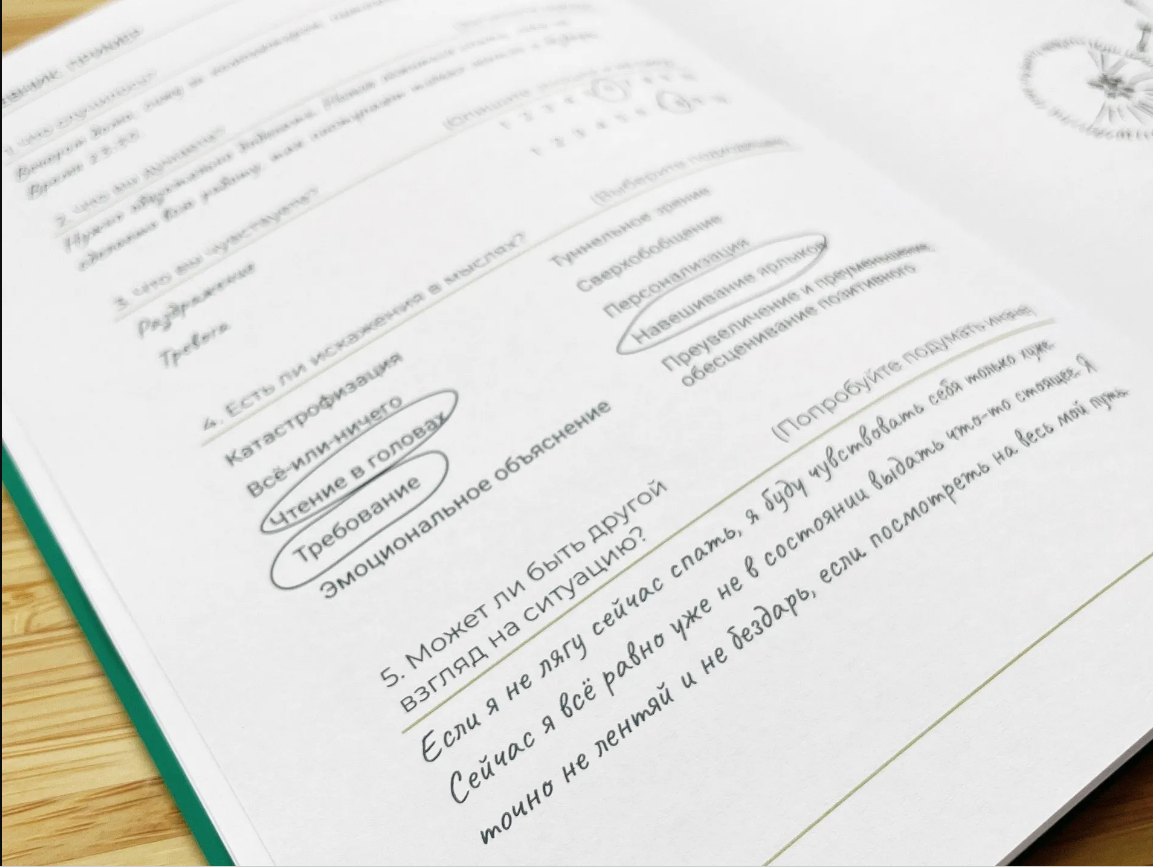 1. Что случилось?
Время 23:30
2. Что вы думаете?
(Опишите
3. Что вы чувствуете?
1 2 3 4
Раздражение
1 2 3 4 5 6
Тревога
4. Есть ли искажения в мыслях?
(Выберите подходящие)
Катастрофизация
Всё-или-ничего
Чтение в головах
Требование
Эмоциональное объяснение
Туннельное зрение
Сверхобобщение
Персонализация
Навешивание ярлыков
Преувеличение и преуменьшение,
обесценивание позитивного
5. Может ли быть другой
взгляд на ситуацию?
(Попробуйте подумать иначе)
Если я не лягу сейчас спать, я буду чувствовать себя только хуже.
Сейчас я всё равно уже не в состоянии выдать что-то стоящее. Я
точно не лентяй и не бездарь, если посмотреть на весь мой путь.